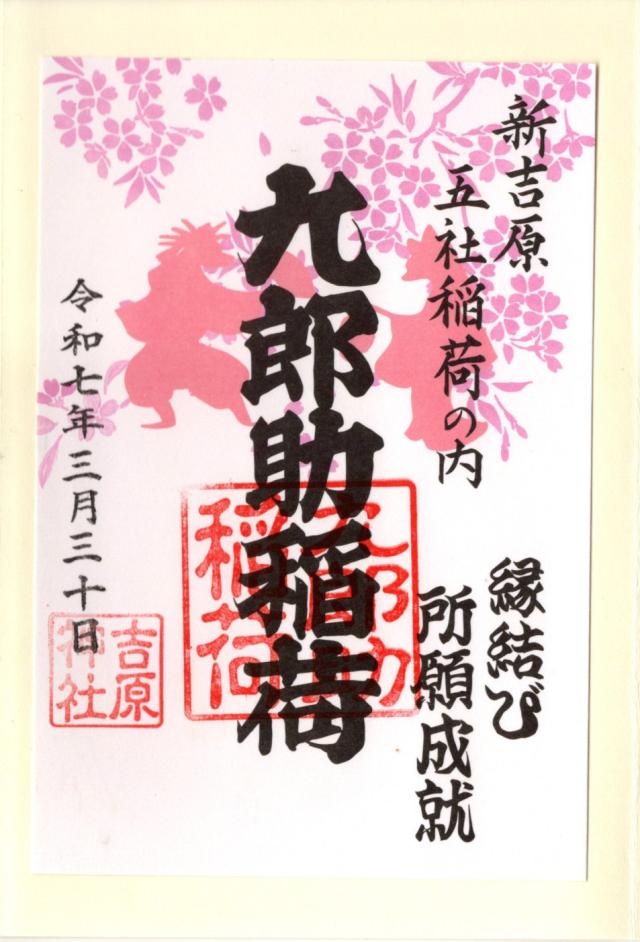 新吉原
五社稲荷の内
縁結び
所願成就
九郎助稲荷
九郎助
稲荷
令和七年三月三十日
吉原
神社